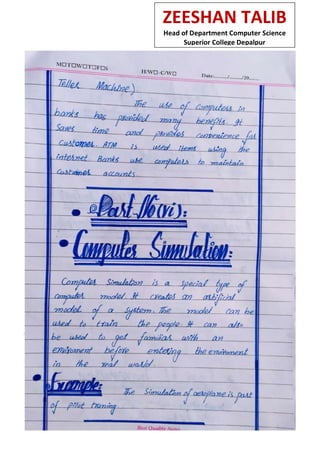 ZEESHAN TALIB
Head of Department Computer Science
Superior College Depalpur
M□T□W□T□F□S
H/W□-C/W□
Date:____/____/20____
Teller Machine).
The use of computers in
banks has provided many benefits. It
Saves time and provides convenience for
Customer ATM is used Items using the
internet Banks use computers to maintain
Customer accounts.
Part No (vi):
Computer Simulation:
Computer Simulation is a special type of
computer model. It creates an artificial
model of a system. The model can be
used to train the people. It can also
be used to get familiar with an
enviroment before entering the enviroment
in the real world.
Example:
The Simulation of aeroplane is part
of pilot traning.
Best Quality Notes